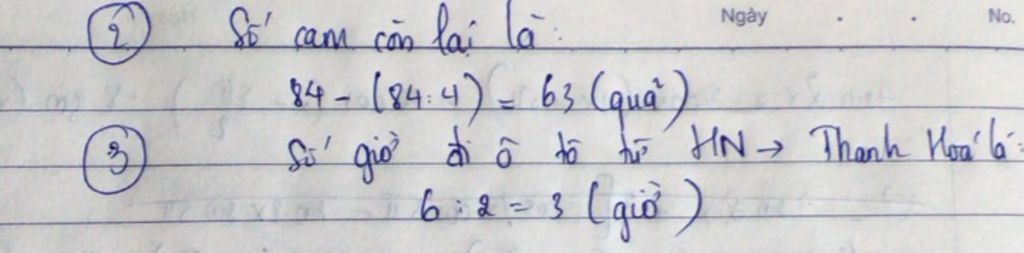 Ngày . . No.
② Số cam còn lại là:
84 - (84:4) = 63 (quả)
③ Số giờ đi ô tô từ HN → Thanh Hoá là:
6 : 2 = 3 (giờ)